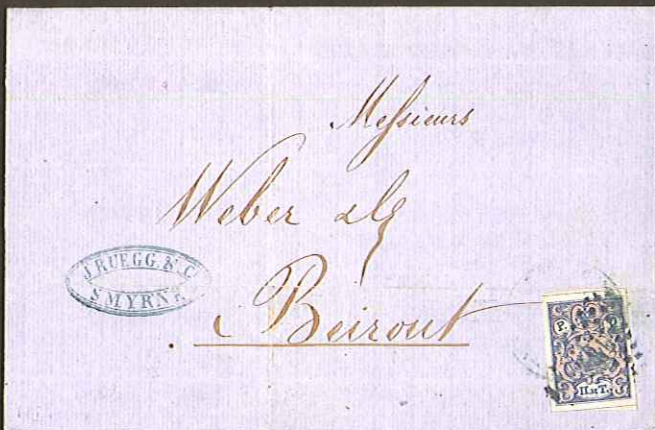 Messieurs
Weber & Cie
Beirout
J. RUEGG & C.
SMYRNE
Р. О.
П. и Т.